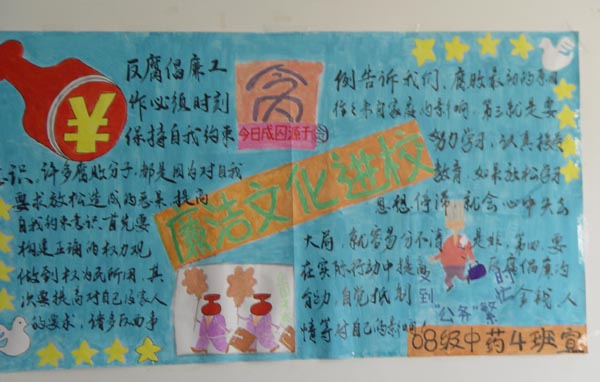 反腐倡廉工
作必须时刻
保持自我约束
意识。许多腐败分子,都是因为对自我
要求放松造成的恶果。提高
自我约束意识,首先要
构建正确的权力观
做到权为民所用,其
次要提高对自己及家人
的要求,诸多反面事
¥
贪
今日成囚源于
廉洁文化进校
例告诉我们,腐败最初的原因
往往来自家庭的影响,第三就是要
努力学习,认真接受
教育,如果放松学习
思想停滞,就会心中失去
大局,就容易分不清是非。第四,要
在实际行动中提高反腐倡廉的
自觉抵制 金钱、人
情等对自己的影响
"公务"繁
08级中药4班宣